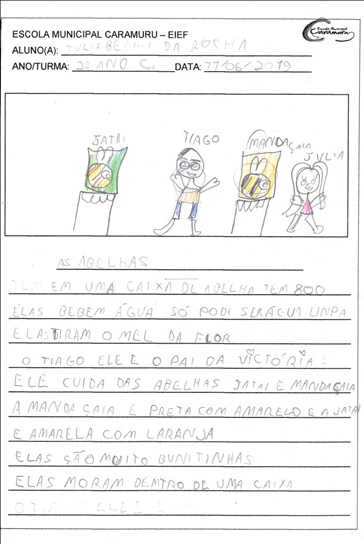 ESCOLA MUNICIPAL CARAMURU – EIEF
Escola Municipal
Caramuru
ALUNO(A): JULIA DA ROCHA
ANO/TURMA: 2º ANO C. DATA: 17/06/2019
JATAI TIAGO MANDAÇAIA JULIA
AS ABELHAS
TEM EM UMA CAIXA DE ABELHA TEM 800
ELAS BEBEM ÁGUA SÓ PODI SER ÁGUA LINPA
ELAS TIRAM O MEL DA FLOR
O TIAGO ELE E O PAI DA VICTÓRIA.
ELE CUIDA DAS ABELHAS JATAI E MANDAÇAIA
A MANDAÇAIA E PRETA COM AMARELO E A JATAI
E AMARELA COM LARANJA
ELAS SÃO MUITO BUNITINHAS
ELAS MORAM DENTRO DE UMA CAIXA
O TIAGO ELE E